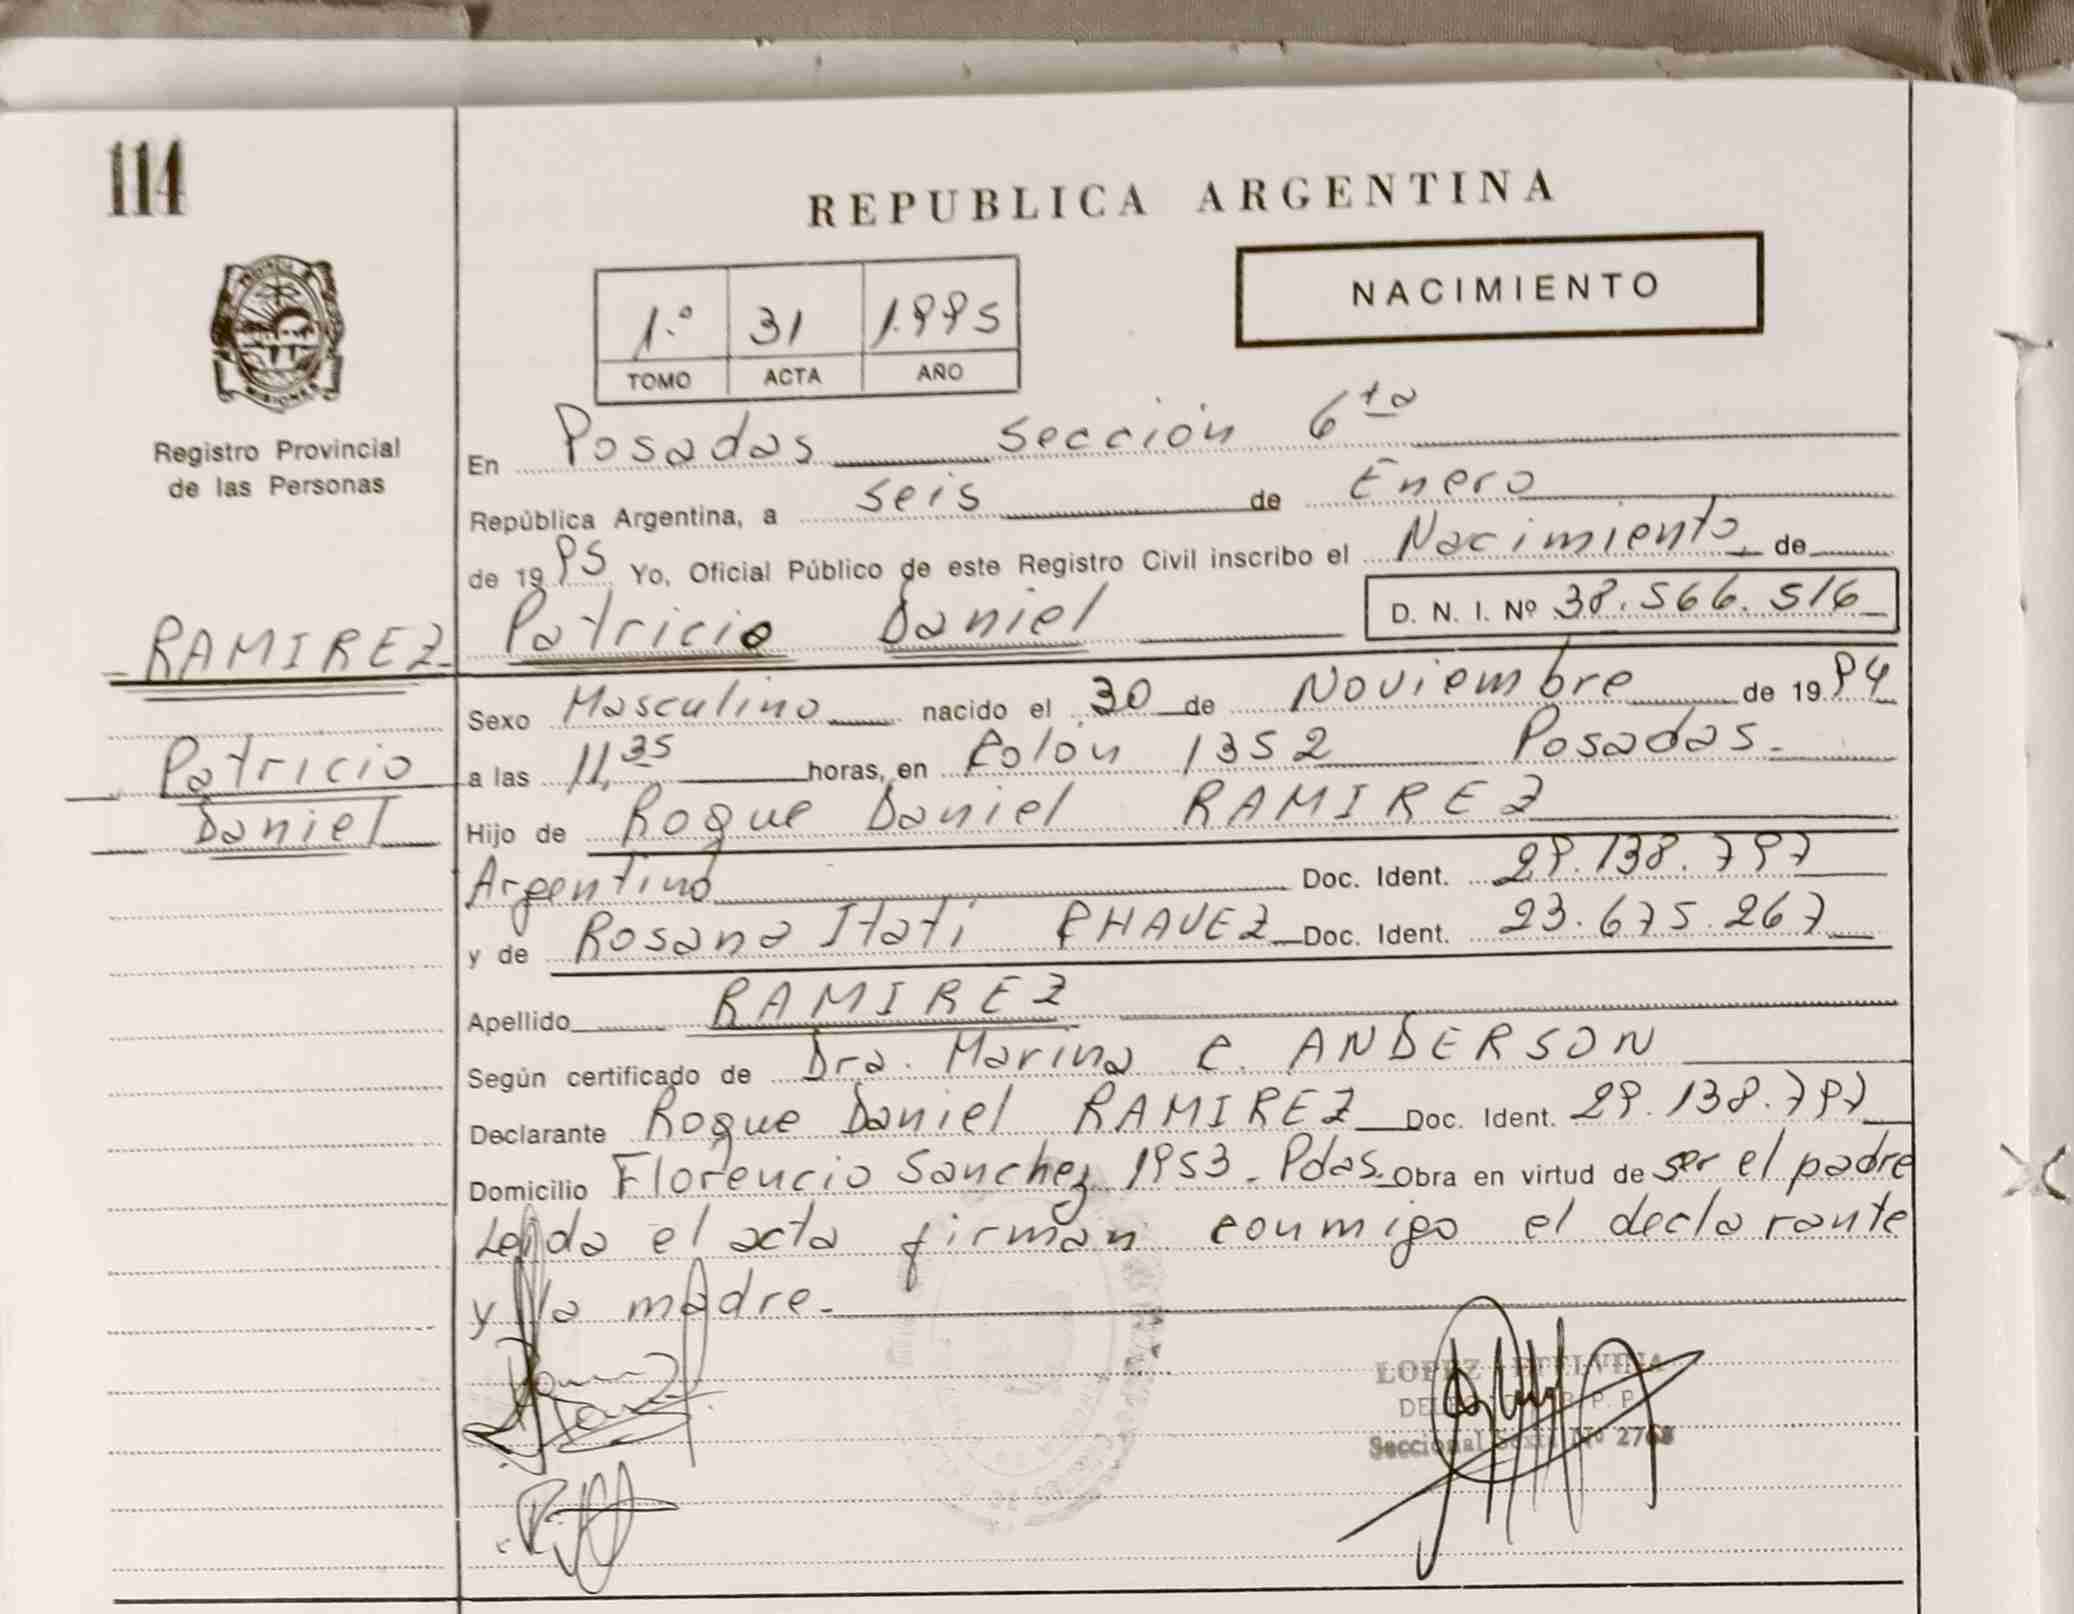 114
REPUBLICA ARGENTINA
NACIMIENTO
1.º 31 1.995
TOMO ACTA AÑO
Registro Provincial
de las Personas
En Posadas sección 6ta
República Argentina, a seis de Enero
de 1995 Yo, Oficial Público de este Registro Civil inscribo el Nacimiento de
D. N. I. Nº 38.566.516
RAMIREZ Patricio Daniel
Sexo Masculino nacido el 30 de Noviembre de 1994
Patricio
a las 11,35 horas, en Colón 1352 Posadas.
Daniel
Hijo de Roque Daniel RAMIREZ
Argentino Doc. Ident. 29.138.797
y de Rosana Itatí CHAVEZ Doc. Ident. 23.675.267
Apellido RAMIREZ
Según certificado de Dra. Marina C. ANDERSON
Declarante Roque Daniel RAMIREZ Doc. Ident. 29.138.797
Domicilio Florencio Sanchez 1953 - Pdas. Obra en virtud de ser el padre
Leída el acta firman conmigo el declarante
y la madre.
LOPEZ ETELVINA
Seccional Sexta Nº